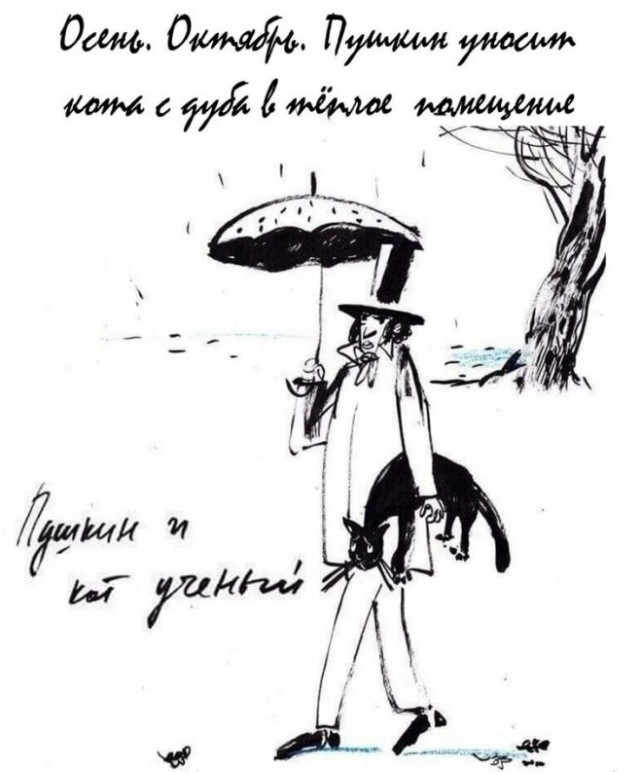 Осень. Октябрь. Пушкин уносит
кота с дуба в тёплое помещение
Пушкин и
кот ученый